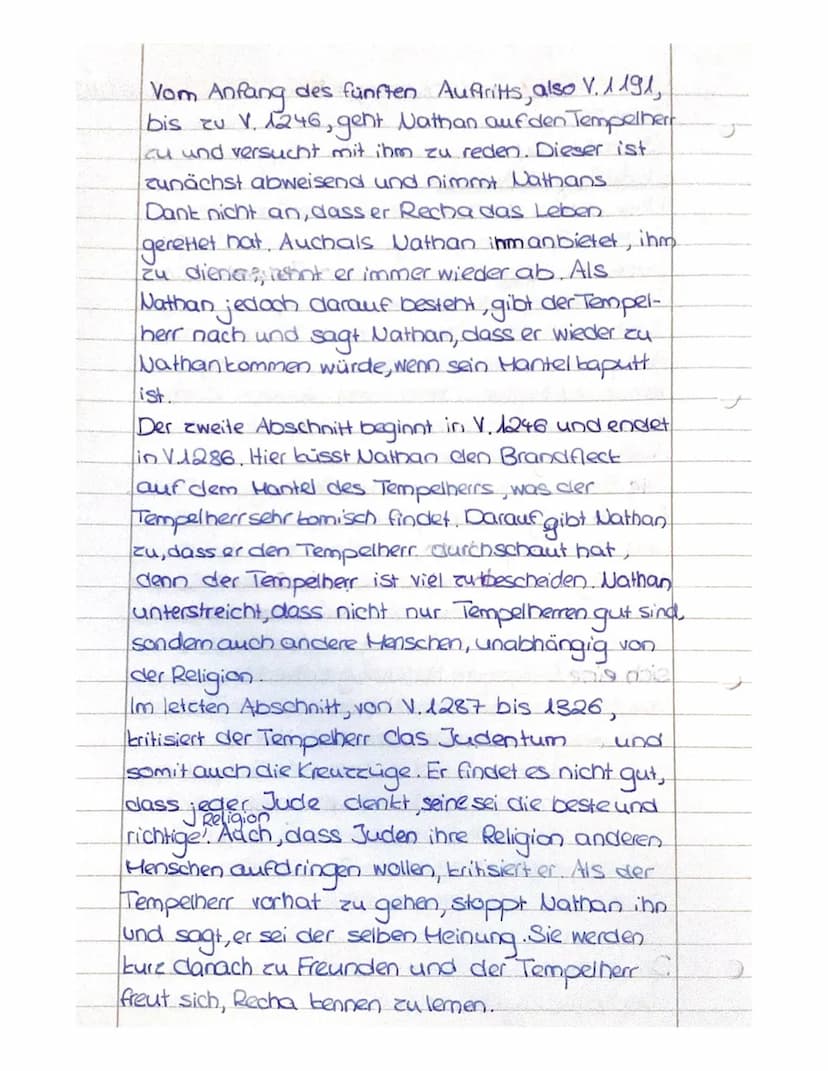 Vom Anfang des fünften Auftritts, also V. 1191,
bis zu V. 1246, geht Nathan auf den Tempelherr
zu und versucht mit ihm zu reden. Dieser ist
zunächst abweisend und nimmt Nathans
Dank nicht an, dass er Recha das Leben
gerettet hat. Auch als Nathan ihm anbietet, ihm
zu dienen, lehnt er immer wieder ab. Als
Nathan jedoch darauf besteht, gibt der Tempel-
herr nach und sagt Nathan, dass er wieder zu
Nathan kommen würde, wenn sein Mantel kaputt
ist.
Der zweite Abschnitt beginnt in V. 1246 und endet
in V. 1286. Hier küsst Nathan den Brandfleck
auf dem Mantel des Tempelherrs, was der
Tempelherr sehr komisch findet. Darauf gibt Nathan
zu, dass er den Tempelherr durchschaut hat,
denn der Tempelherr ist viel zu bescheiden. Nathan
unterstreicht, dass nicht nur Tempelherren gut sind,
sondern auch andere Menschen, unabhängig von
der Religion.
Im letzten Abschnitt, von V. 1287 bis 1326,
kritisiert der Tempelherr das Judentum und
somit auch die Kreuzzüge. Er findet es nicht gut,
dass jeder Jude denkt, seine sei die beste und
richtige Religion! Auch, dass Juden ihre Religion anderen
Menschen aufdringen wollen, kritisiert er. Als der
Tempelherr vorhat zu gehen, stoppt Nathan ihn
und sagt, er sei der selben Meinung. Sie werden
kurz danach zu Freunden und der Tempelherr
freut sich, Recha kennen zu lernen.